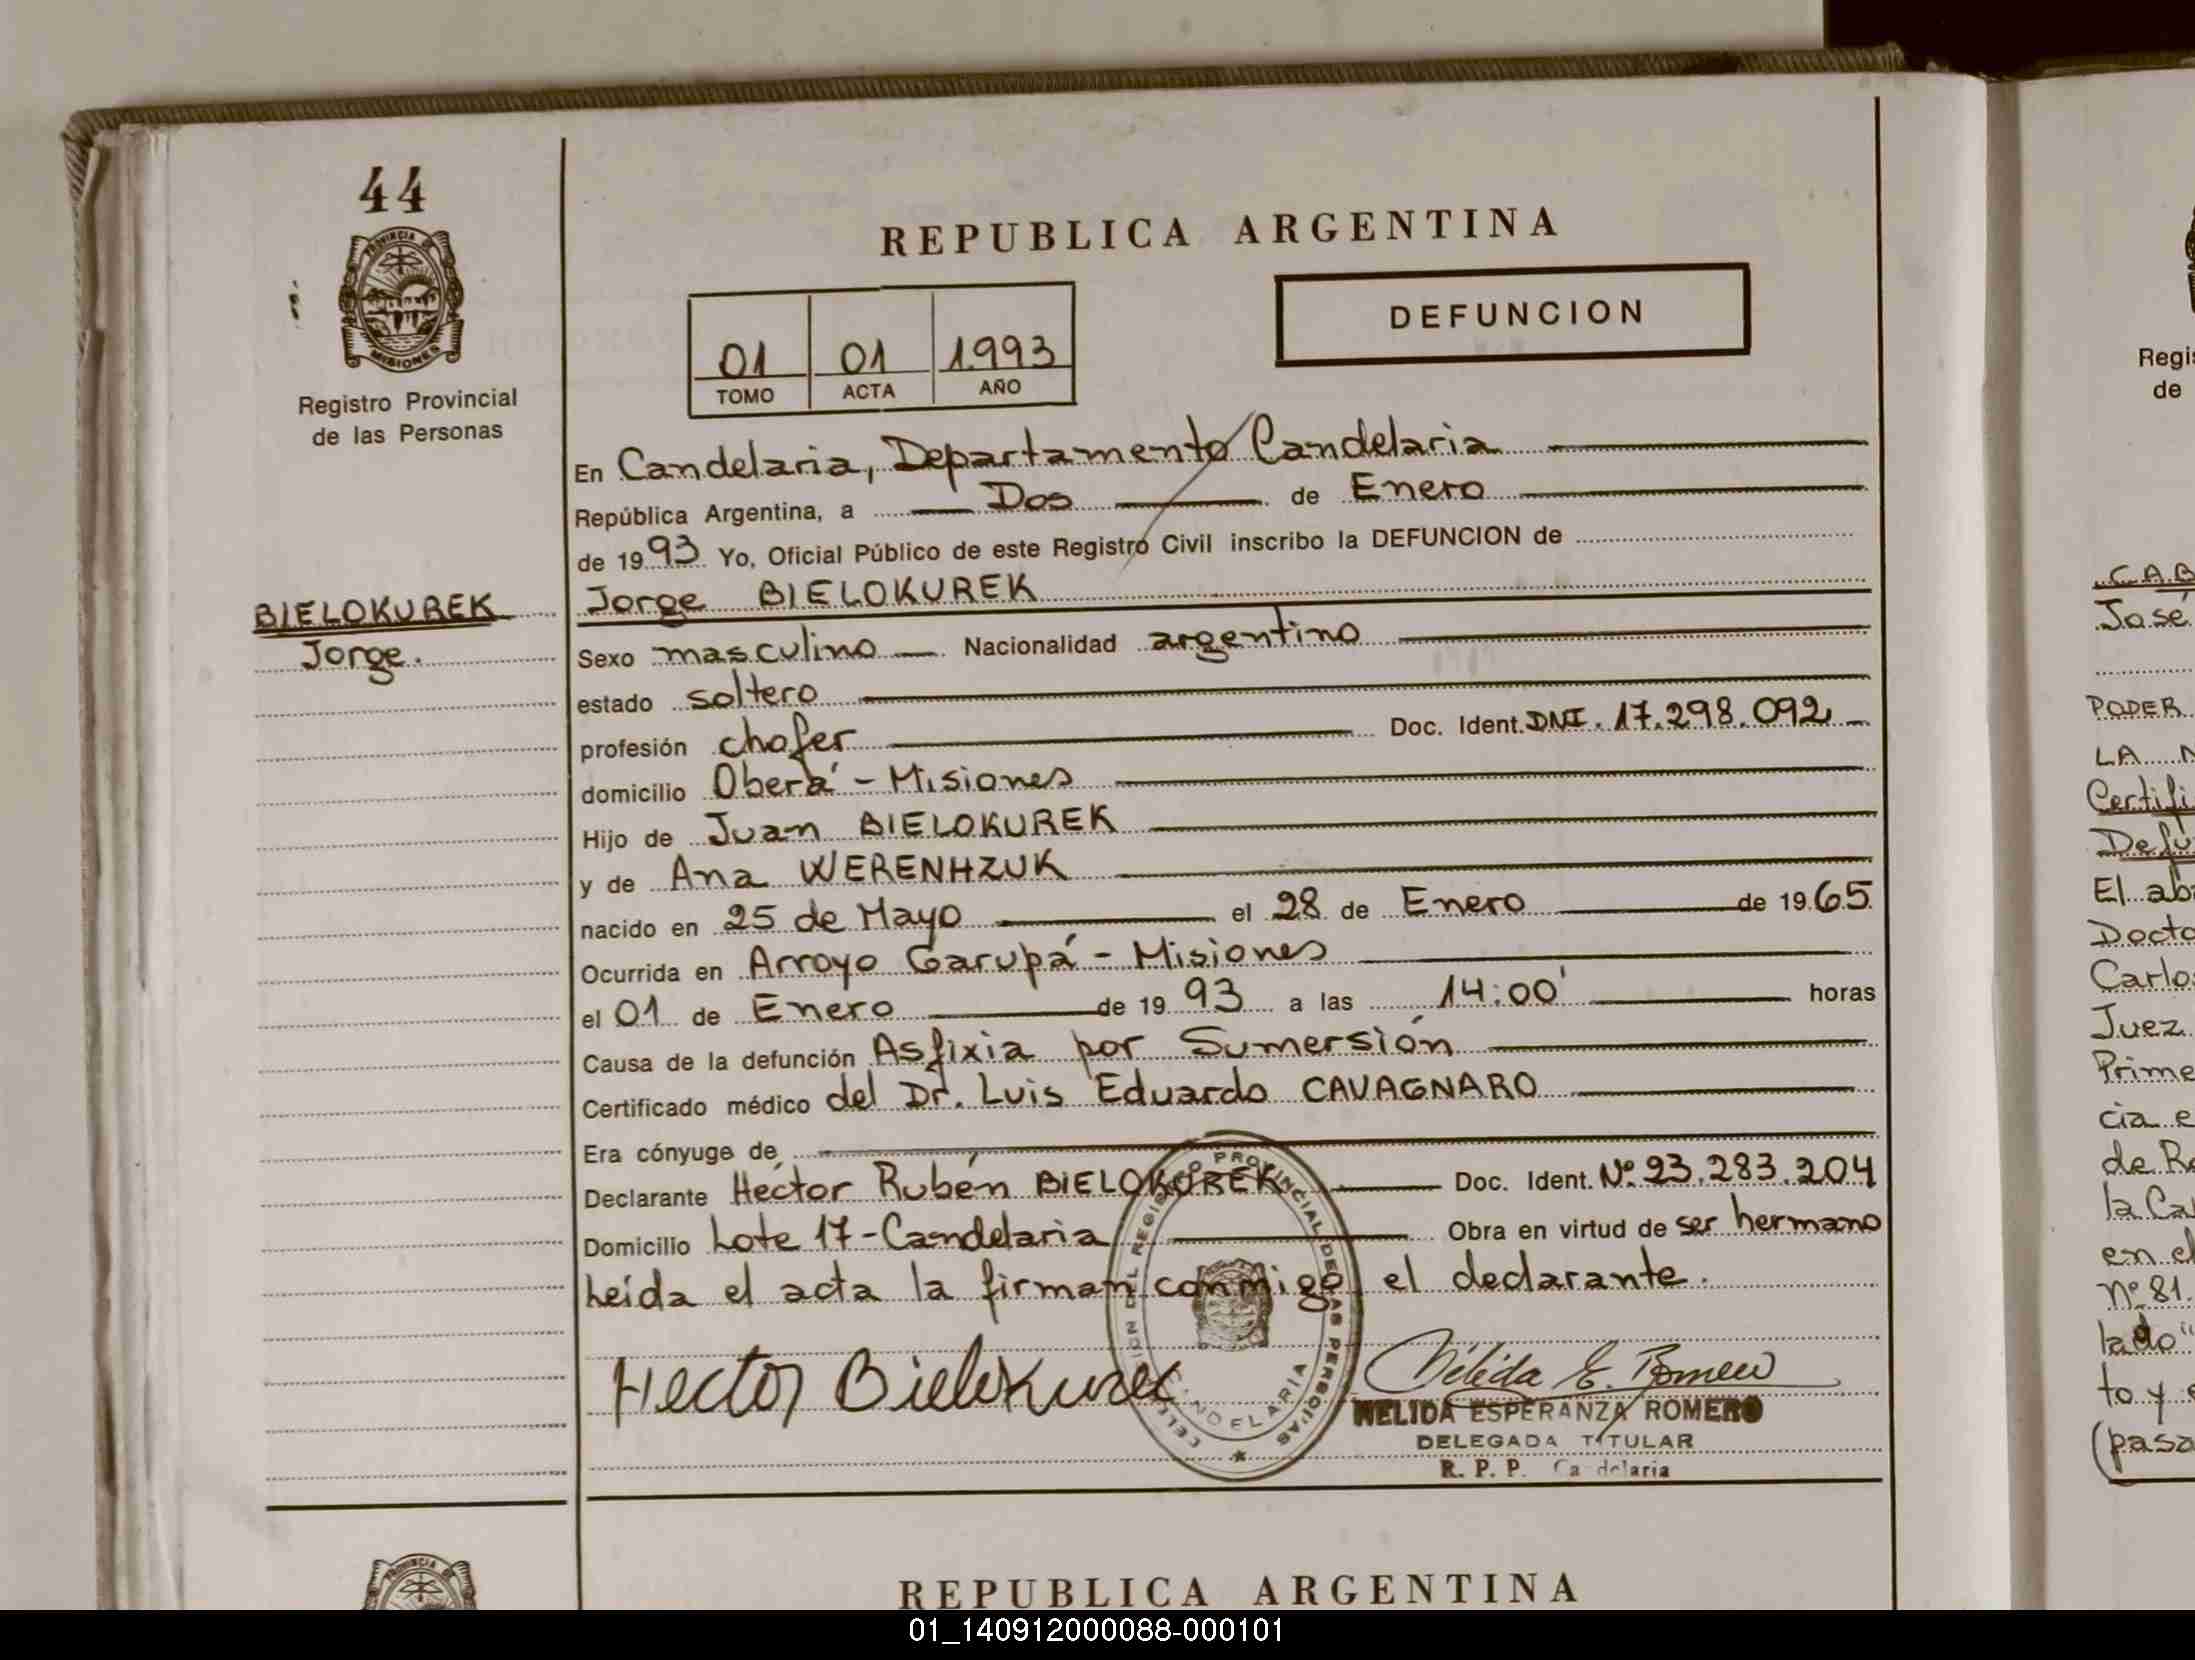 44
PROVINCIA DE
MISIONES
Registro Provincial
de las Personas
BIELOKUREK
Jorge.
REPUBLICA ARGENTINA
DEFUNCION
01 01 1.993
TOMO ACTA AÑO
En Candelaria, Departamento Candelaria
República Argentina, a Dos de Enero
de 19 93 Yo, Oficial Público de este Registro Civil inscribo la DEFUNCION de
Jorge BIELOKUREK
Sexo masculino Nacionalidad argentino
estado soltero
profesión chofer Doc. Ident. DNI. 17.298.092
domicilio Oberá - Misiones
Hijo de Juan BIELOKUREK
y de Ana WERENHZUK
nacido en 25 de Mayo el 28 de Enero de 19 65
Ocurrida en Arroyo Garupá - Misiones
el 01 de Enero de 19 93 a las 14:00' horas
Causa de la defunción Asfixia por Sumersión
Certificado médico del Dr. Luis Eduardo CAVAGNARO
Era cónyuge de
Declarante Héctor Rubén BIELOKUREK Doc. Ident. Nº. 23.283.204
Domicilio Lote 17 - Candelaria Obra en virtud de ser hermano
Leída el acta la firman conmigo el declarante.
DEL REGISTRO PROVINCIAL DE LAS PERSONAS
CANDELARIA
Hector Bielokurek
Nélida E. Romero
NELIDA ESPERANZA ROMERO
DELEGADA TITULAR
R. P. P. Candelaria
PROVINCIA
REPUBLICA ARGENTINA
Regi
de
CAB
José
PODER
LA
Certifi
Defu
El ab
Docto
Carlo
Juez
Prime
cia e
de Re
la Ca
en el
Nº 81
lado"
to y
(pasa
01_140912000088-000101